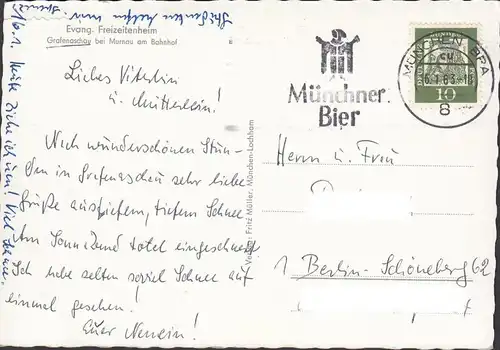 Evang. Freizeitenheim
Grafenaschau bei Murnau am Bahnhof
Liebes Väterlein
u. Mütterlein!
Nach wunderschönen Stun-
den in Grafenaschau sehr liebe
Grüße aus tiefem Schnee
Am Sonnabend total eingeschneit
Ich habe selten soviel Schnee auf
einmal gesehen!
Euer
16.1. Heute ziehe ich um! Viel
Verlag: Fritz Müller, München-Lochham
Münchner
Bier
MÜNCHEN BPA
16.1.63
8
10
Herrn u. Frau
1 Berlin-Schöneberg 62